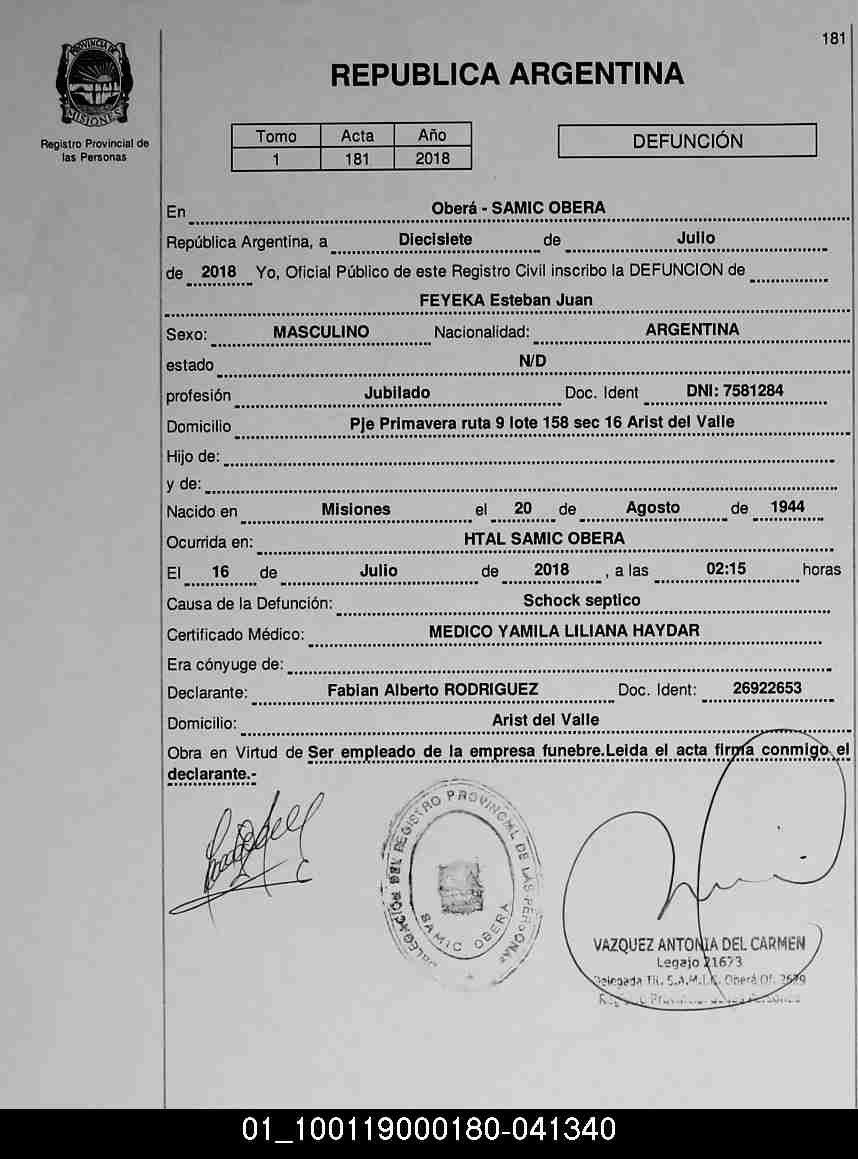 181
PROVINCIA DE
MISIONES
REPUBLICA ARGENTINA
Registro Provincial de
las Personas
Tomo Acta Año
1 181 2018
DEFUNCIÓN
En Oberá - SAMIC OBERA
República Argentina, a Diecisiete de Julio
de 2018 Yo, Oficial Público de este Registro Civil inscribo la DEFUNCION de
FEYEKA Esteban Juan
Sexo: MASCULINO Nacionalidad: ARGENTINA
estado N/D
profesión Jubilado Doc. Ident DNI: 7581284
Domicilio Pje Primavera ruta 9 lote 158 sec 16 Arist del Valle
Hijo de:
y de:
Nacido en Misiones el 20 de Agosto de 1944
Ocurrida en: HTAL SAMIC OBERA
El 16 de Julio de 2018 , a las 02:15 horas
Causa de la Defunción: Schock septico
Certificado Médico: MEDICO YAMILA LILIANA HAYDAR
Era cónyuge de:
Declarante: Fabian Alberto RODRIGUEZ Doc. Ident: 26922653
Domicilio: Arist del Valle
Obra en Virtud de Ser empleado de la empresa funebre.Leida el acta firma conmigo el
declarante.-
DELEGACION DEL REGISTRO PROVINCIAL DE LAS PERSONAS
SAMIC OBERA
VAZQUEZ ANTONIA DEL CARMEN
Legajo 21673
Delegada Tit. S.A.M.I.C. Oberá Of. 2679
Registro Provincial de las Personas
01_100119000180-041340